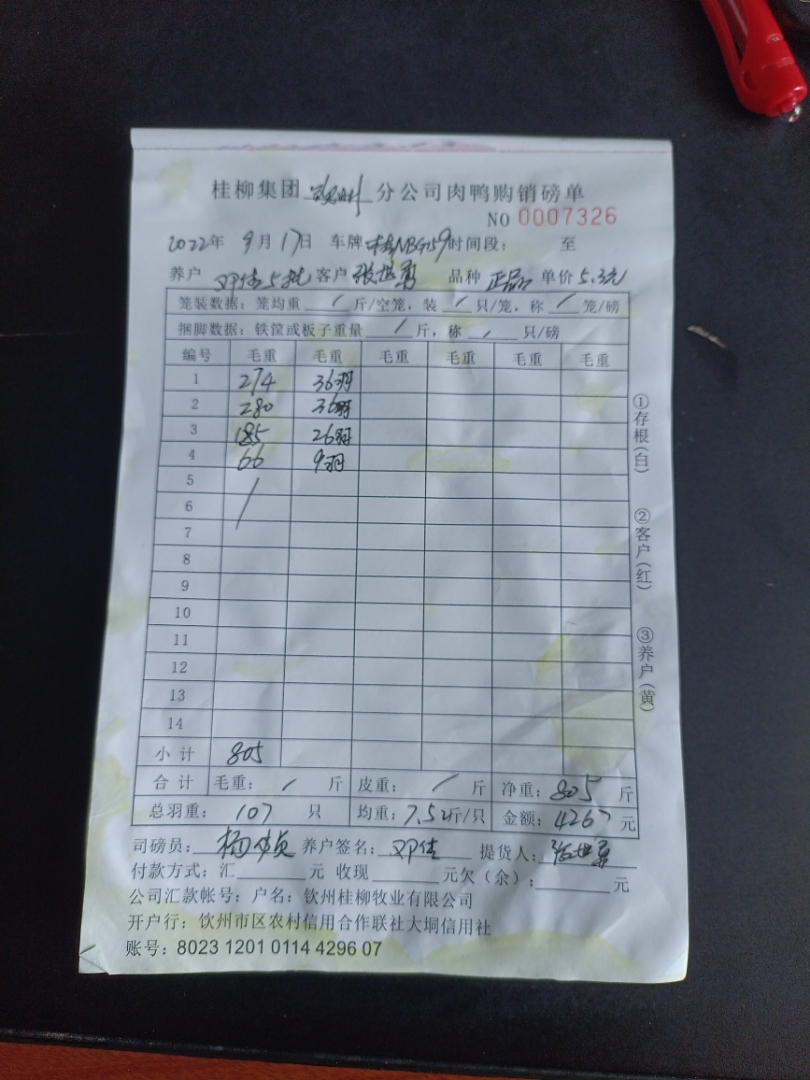 桂柳集团 分公司肉鸭购销磅单
NO 0007326
2022年 9月17日 车牌 时间段： 至
养户 邓佳5批 客户 张世勇 品种 正品 单价 5.3元
笼装数据：笼均重 / 斤/空笼，装 / 只/笼，称 / 笼/磅
捆脚数据：铁筐或板子重量 / 斤，称 / 只/磅
编号 毛重 毛重 毛重 毛重 毛重 毛重
1 274 36羽
2 280 36羽
3 185 26羽
4 66 9羽
5 /
6
7
8
9
10
11
12
13
14
小计 805
合计 毛重： / 斤 皮重： / 斤 净重：805 斤
总羽重： 107 只 均重：7.52斤/只 金额：4267 元
司磅员： 养户签名：邓佳 提货人：张世勇
付款方式：汇 元 收现 元欠（余）： 元
公司汇款帐号：户名：钦州桂柳牧业有限公司
开户行：钦州市区农村信用合作联社大垌信用社
账号：8023 1201 0114 4296 07
①存根（白）
②客户（红）
③养户（黄）